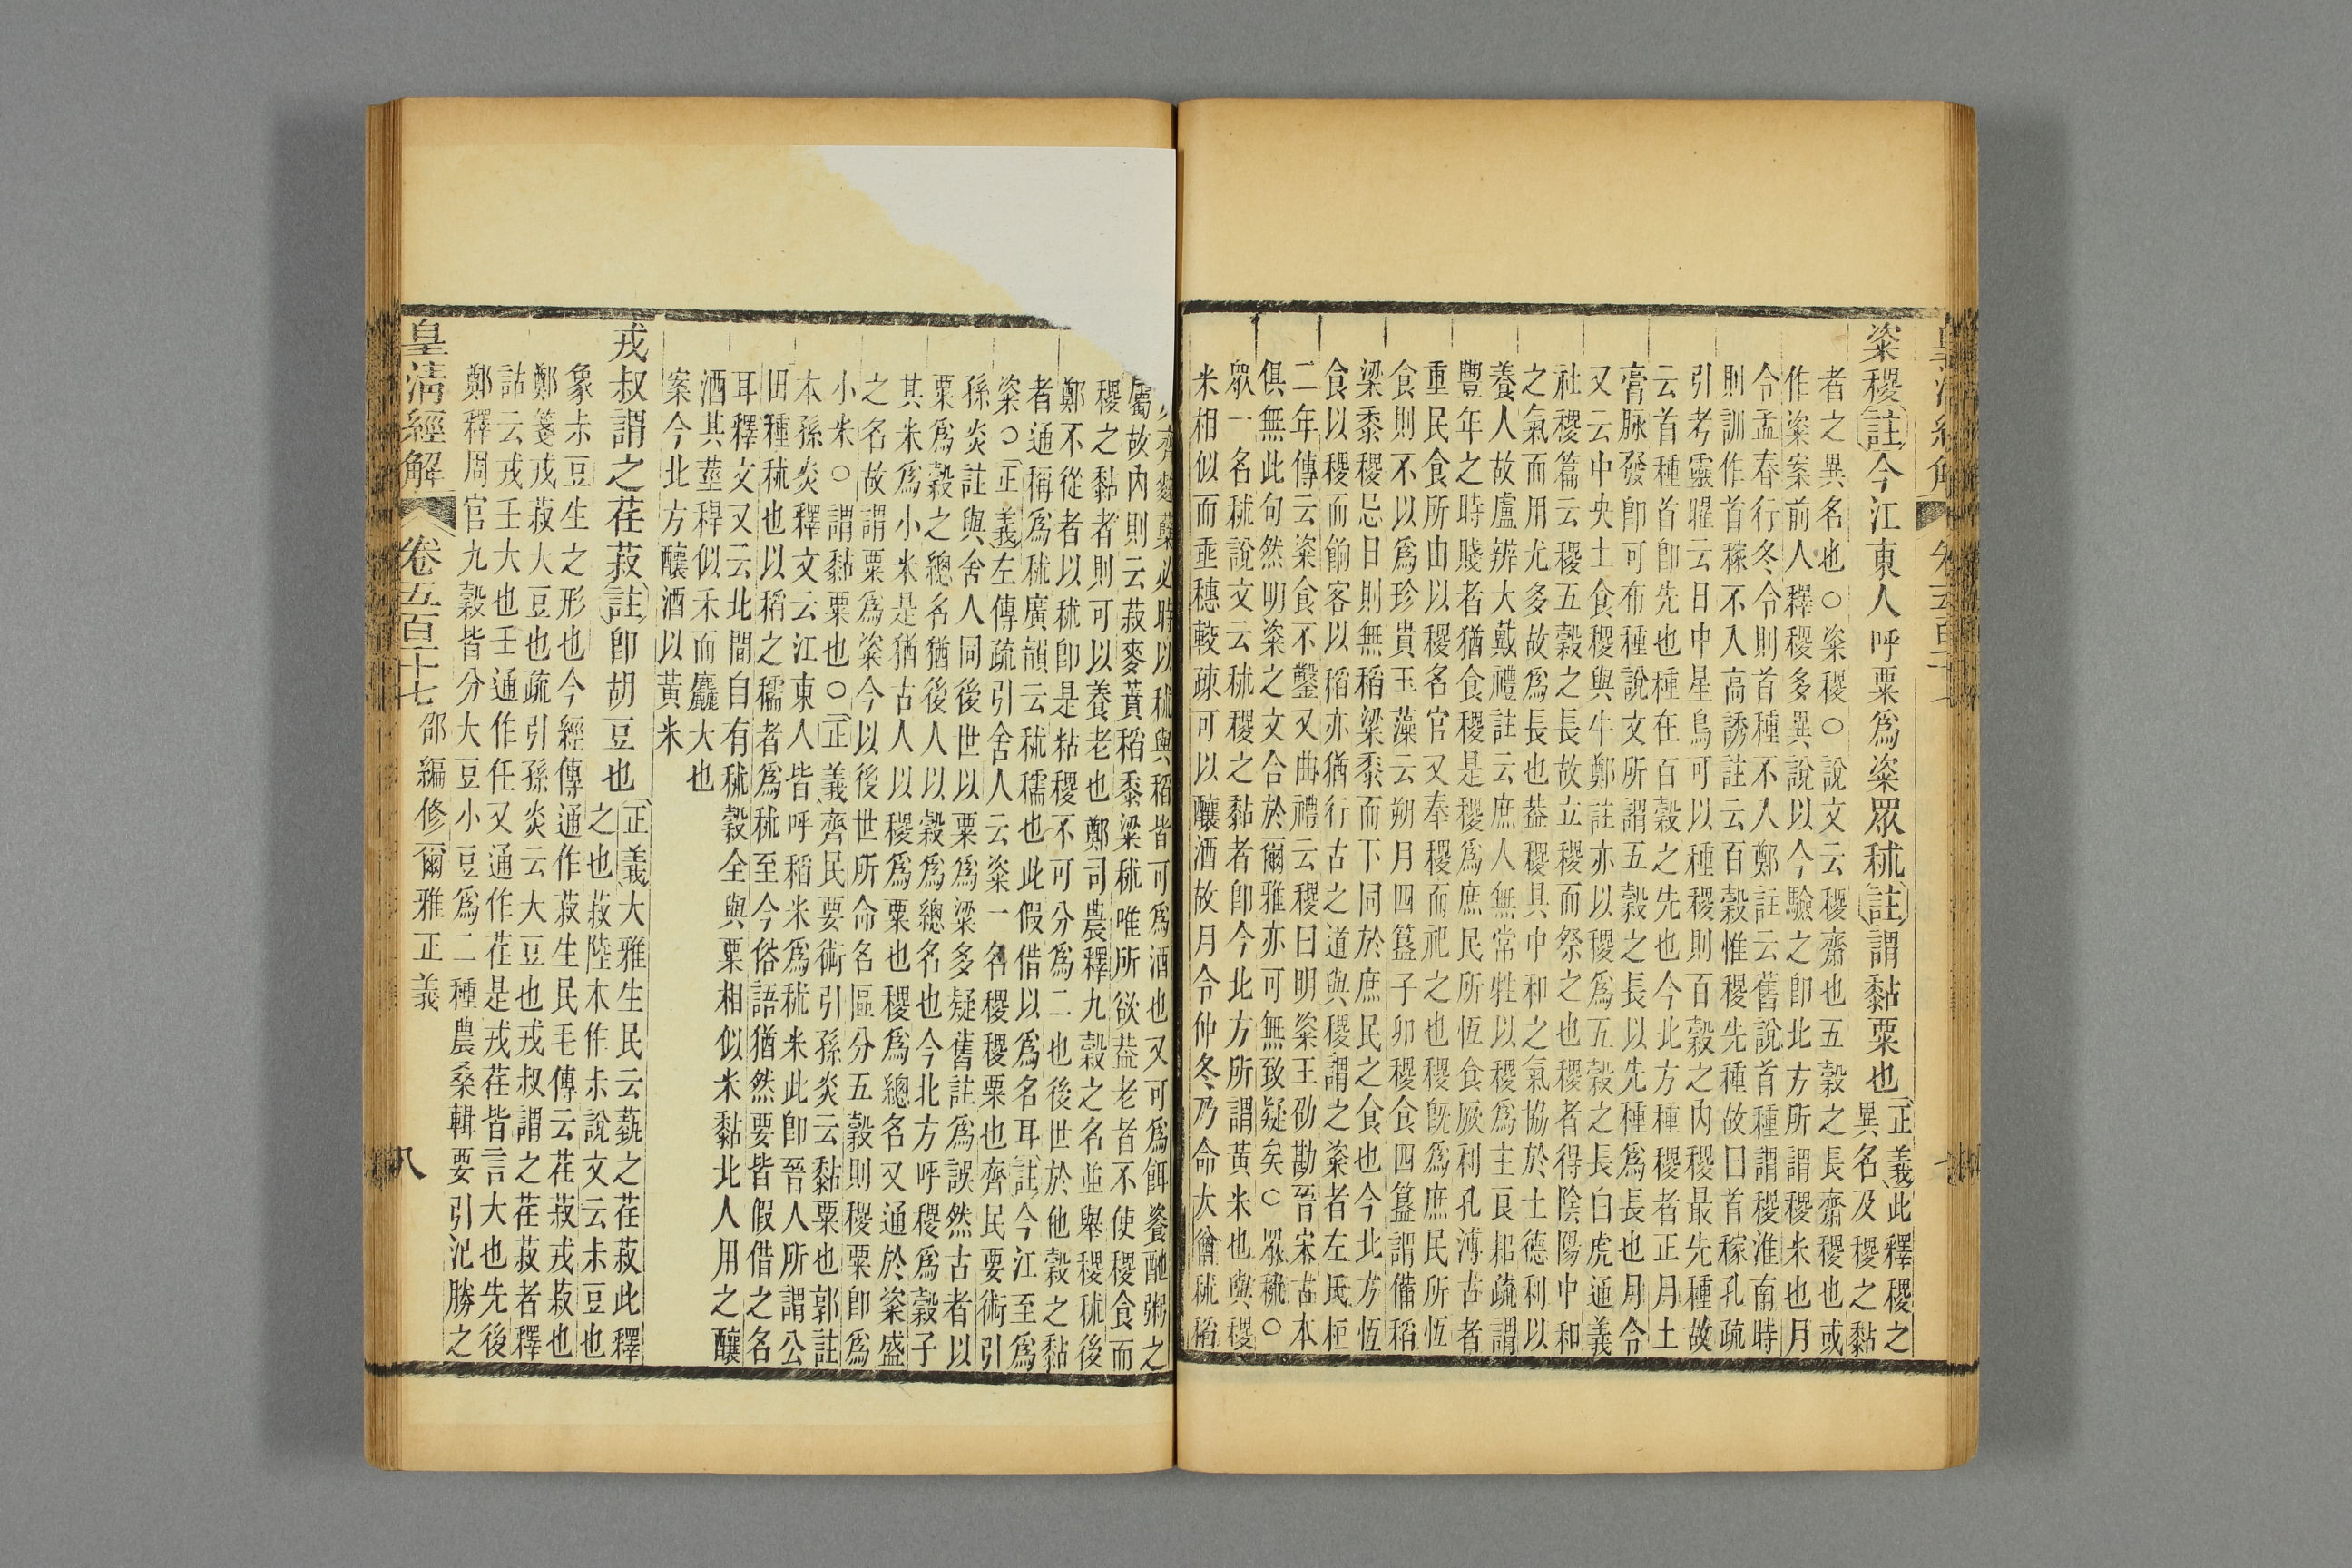 粢稷註今江東人呼粟爲粢眾秫註謂黏粟也正義此釋稷之
異名及稷之黏
者之異名也○粢稷○說文云稷齋也五穀之長齋稷也或
作粢案前人釋稷多異說以今驗之卽北方所謂稷米也月
令孟春行冬令則首種不入鄭註云舊說首種謂稷淮南時
則訓作首稼不入高誘註云百穀惟稷先種故曰首稼孔疏
引考靈曜云日中星鳥可以種稷則百穀之內稷最先種故
云首種首卽先也種在百穀之先也今北方種稷者正月土
膏脉發卽可布種說文所謂五穀之長以先種爲長也月令
又云中央土食稷與牛鄭註亦以稷爲五穀之長白虎通義
社稷篇云稷五穀之長故立稷而祭之也稷者得陰陽中和
之氣而用尤多故爲長也葢稷具中和之氣協於土德利以
養人故盧辨大戴禮註云庶人無常牲以稷爲主良耜疏謂
豐年之時賤者猶食稷是稷爲庶民所恆食厥利孔溥古者
重民食所由以稷名官又奉稷而祀之也稷旣爲庶民所恆
食則不以爲珍貴玉藻云朔月四簋子卯稷食四簋謂備稻
梁黍稷忌日則無稻梁黍而下同於庶民之食也今北方恆
食以稷而餉客以稻亦猶行古之道與稷謂之粢者左氏桓
二年傳云粢食不鑿又曲禮云稷曰明粢王劭勘晉宋古本
俱無此句然明粢之文合於爾雅亦可無致疑矣○眾秫○
眾一名秫說文云秫稷之黏者卽今北方所謂黃米也與稷
米相似而垂穗較疎可以釀酒故月令仲冬乃命大酋秫稻
齊麴櫱必時以秫與稻皆可爲酒也又可爲餌餈酏粥之
屬故內則云菽麥蕡稻黍梁秫唯所欲葢老者不使稷食而
稷之黏者則可以養老也鄭司農釋九穀之名並舉稷秫後
鄭不從者以秫卽是粘稷不可分爲二也後世於他穀之黏
者通稱爲秫廣韻云秫穤也此假借以爲名耳註今江至爲
粢○正義左傳疏引舍人云粢一名稷稷粟也齊民要術引
孫炎註與舍人同後世以粟爲梁多疑舊註爲誤然古者以
粟爲穀之總名猶後人以穀爲總名也今北方呼稷爲穀子
其米爲小米是猶古人以稷爲粟也稷爲總名又通於粢盛
之名故謂粟爲粢今以後世所命名區分五穀則稷粟卽爲
小米○謂黏粟也○正義齊民要術引孫炎云黏粟也郭註
本孫炎釋文云江東人皆呼稻米爲秫米此卽晉人所謂公
田種秫也以稻之穤者爲秫至今俗語猶然要皆假借之名
耳釋文又云北間自有秫穀全與粟相似米黏北人用之釀
酒其莖稈似禾而麤大也
案今北方釀酒以黃米
戎叔謂之荏菽註卽胡豆也正義大雅生民云蓺之荏菽此釋
之也菽陸本作尗說文云尗豆也
象尗豆生之形也今經傳通作菽生民毛傳云荏菽戎菽也
鄭箋戎菽大豆也疏引孫炎云大豆也戎叔謂之荏菽者釋
詁云戎壬大也壬通作任又通作荏是戎荏皆言大也先後
鄭釋周官九穀皆分大豆小豆爲二種農桑輯要引氾勝之
皇清經解 卷五百十七 邵編修爾雅正義 八